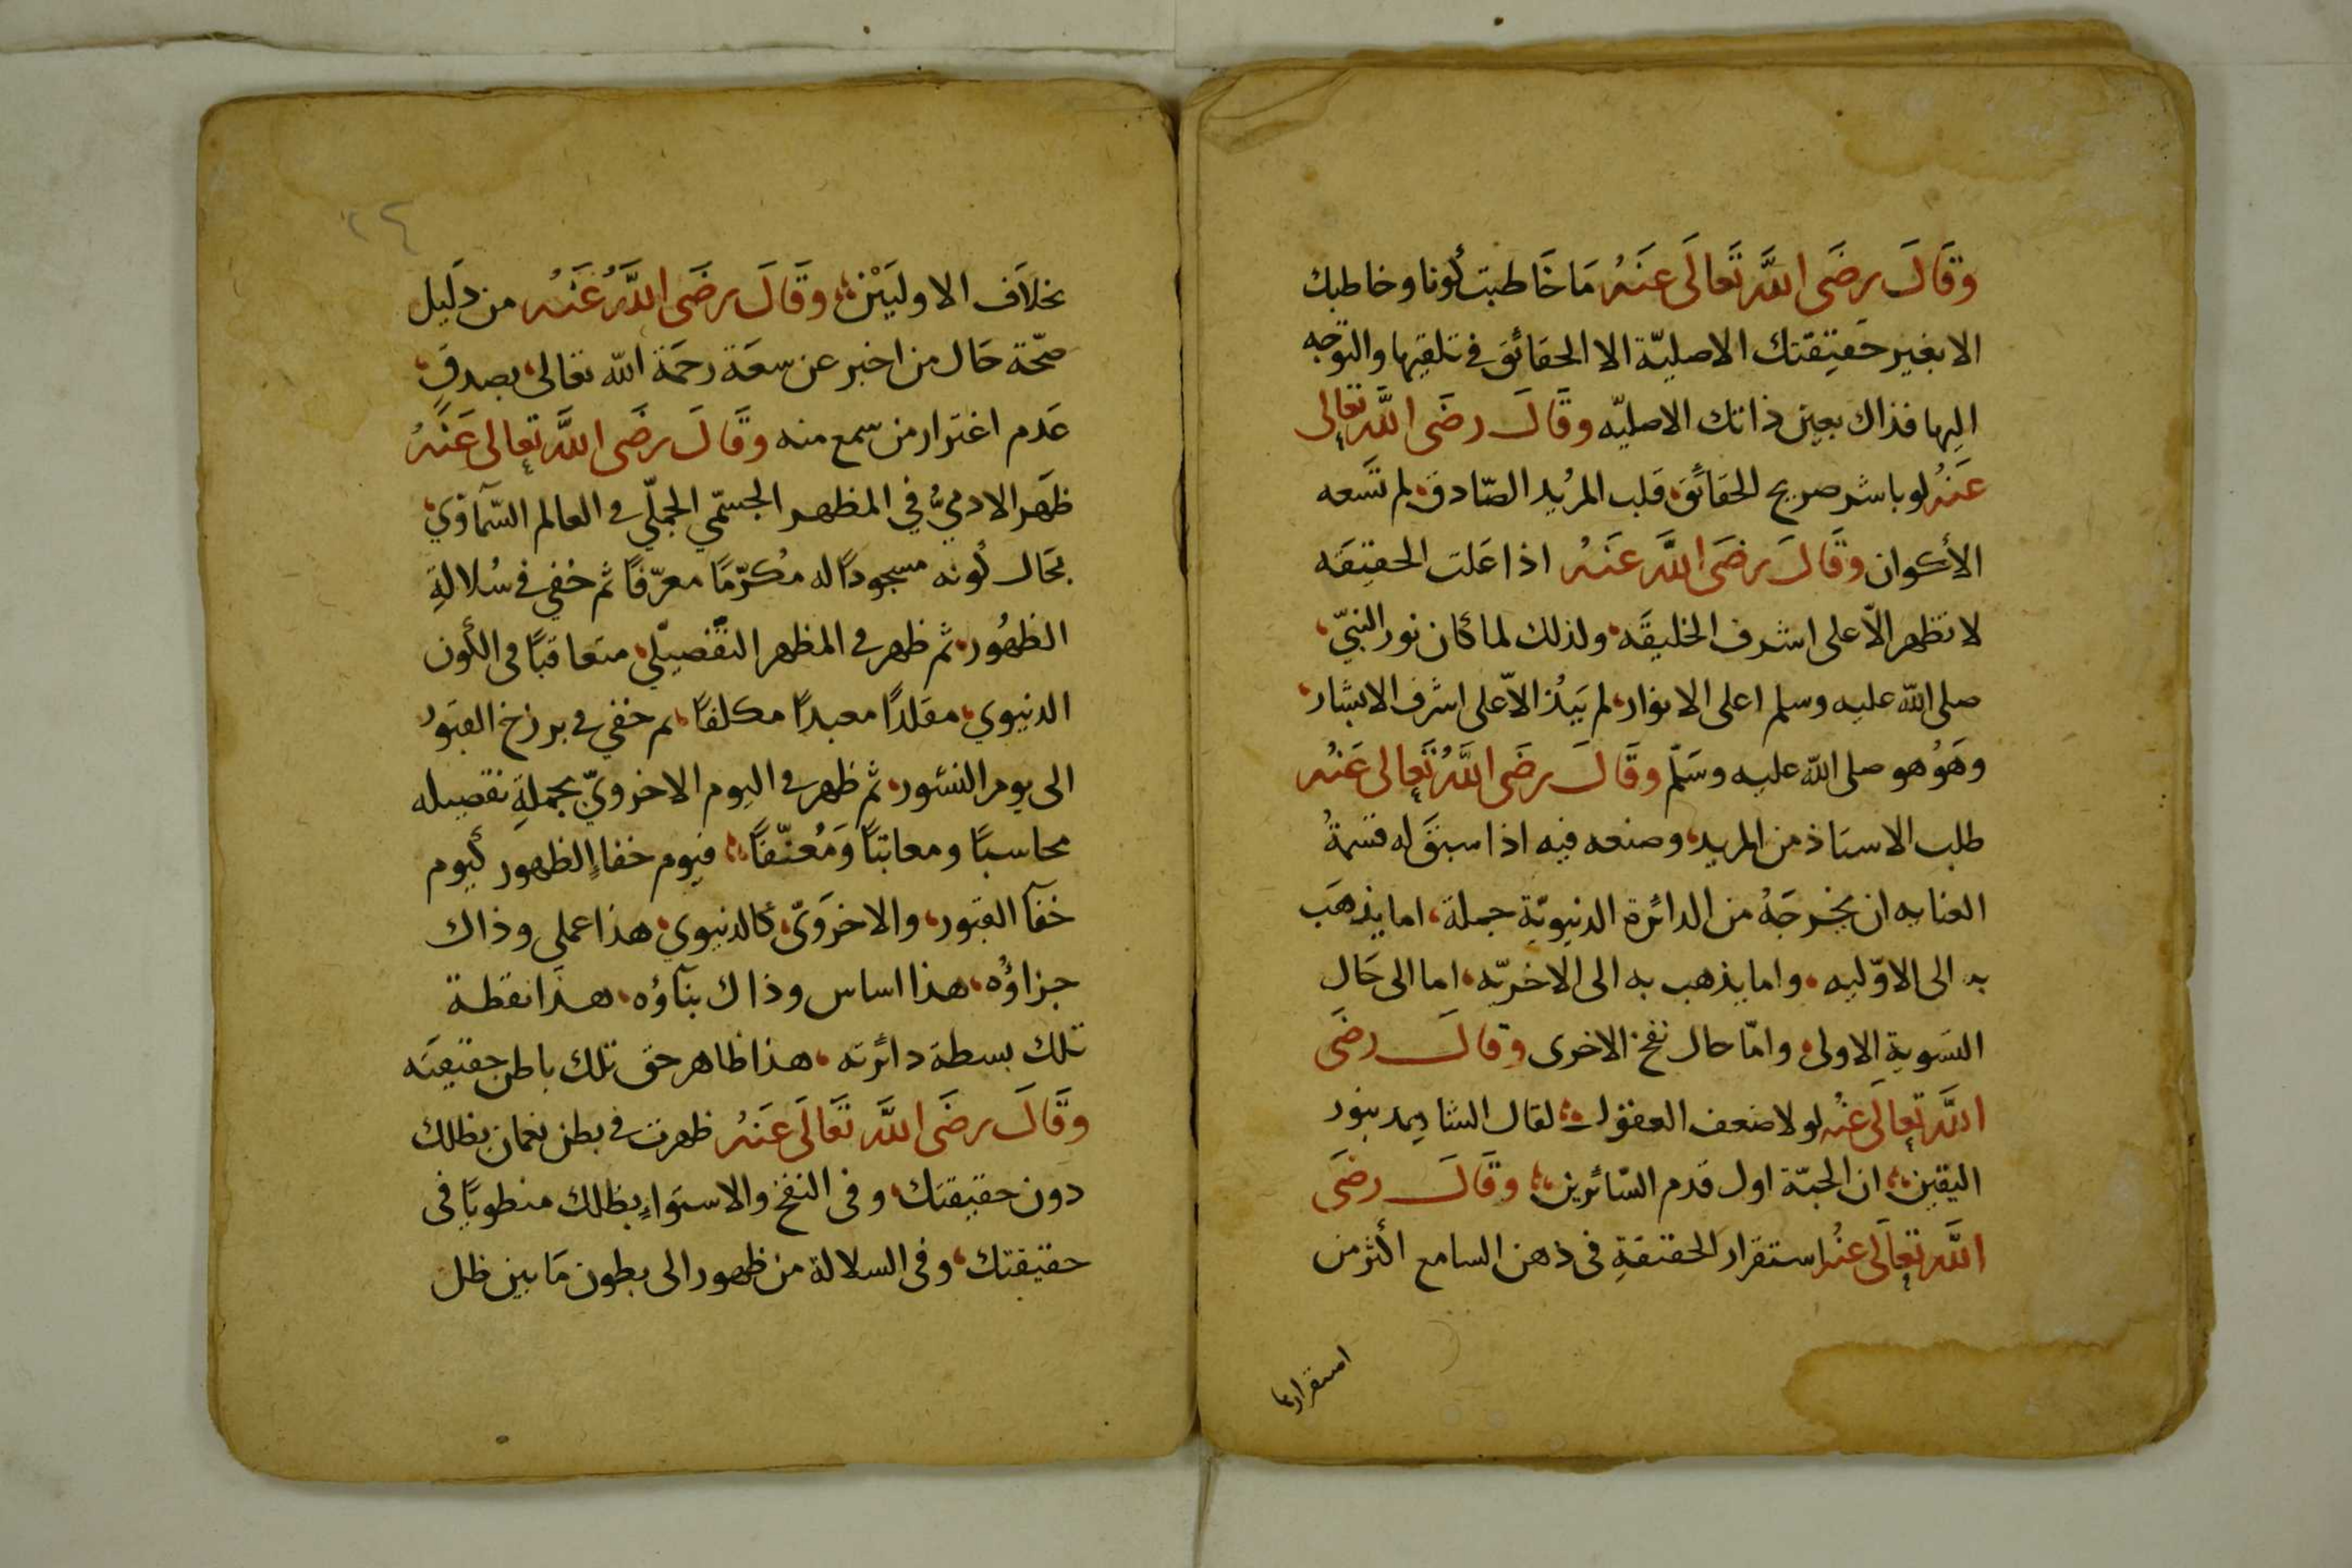 وَقَالَ رضَى اللَّه تَعالَى عَنهُ مَا خَاطبت كونا وخاطبك
الا بغير حَقِيقتك الاصليّة الا الحقائق في تلقيها والتوجه
اليها فذاك بعين ذاتك الاصليّه وقَالَ رضَى اللَّه تعالى
عَنهُ لو باشر صريح الحقائق قلب المريُد الصّادق لم تسَعه
الأكوان وقَالَ رضَى اللَّه عَنهُ اذا عَلت الحقيقَه
لا تظهر الاّ على اشرف الخليقَه ولذلك لما كان نور النبيّ
صلى الله عليه وسلم اعلى الانوار لم يَبْد الاّ على اشرف الابشار
وهَوُ هو صلى الله عليه وسَلّم وقَالَ رضَى اللَّهُ تعالى عَنْه
طلب الاستاذ من المريد وصنعه فيه اذا سبقَ له قسمةُ
العنايه ان يخرجَهُ من الدائرة الدنيويّة جملة اما يذهَب
به الى الاوّليه واما يذهب به الى الاخريّه اما الى حَال
التسَوية الاولى واما حال نفخ الاخرى وقالَ رضَى
اللَّه تعالَى عَنْه لولا ضعف العقول لقال الشا بنور
اليقين ان الجبّة اول قدم السّائرين وقَالَ رضَى
اللَّه تعالَى عَنهُ استقرار الحقيقةِ في ذهن السامع اكثر من
استقرارها
٢٤
بخلاَف الاوليَيْن وقَالَ رضَى اللَّهُ عَنْه من دَليل
صحّة حَال من اخبر عن سعَة رحمَة الله تعالى بصدقِ
عَدم اغترار من سمع منه وقَالَ رضَى اللَّه تعالى عَنْهُ
ظهَر الادميُّ في المظهر الجسمّي الجمَلّي في العالم السَّمآوَي
بحَال كونه مسجوداً له مُكرّمًا معرّفًا ثم خفي في سُلالةِ
الظهُور ثم ظهر في المظهر التفصيلّي متعاقبًا في الكون
الدنيوي مقلدًا معبدًا مكلفًا ثم خفي في برزخ القبَورُ
الى يوم النشور ثم ظهر في اليوم الاخرويّ بجملةِ تفصيله
محاسبًا ومعاتبًا وَمُعنّفًا فيوم خفاءٍ الظهور كيوم
خفآ القبور والاخروَىّ كالدنيوي هذا عملى وذاك
جزاؤُه هذا اساس وذاك بنآؤه هذَا نقطة
تلك بسطة دائرته هذا ظاهر حق تلك باطن حقيقتَه
وقَالَ رضَى اللَّه تَعَالَى عَنهُ ظهرت في بطن نعمان بظلك
دون حقيقتك وفي النفخ والاستوَاءِ بظلك منطويًا في
حقيقتك وفي السلالة من ظهور الى بطون مَا بين ظل